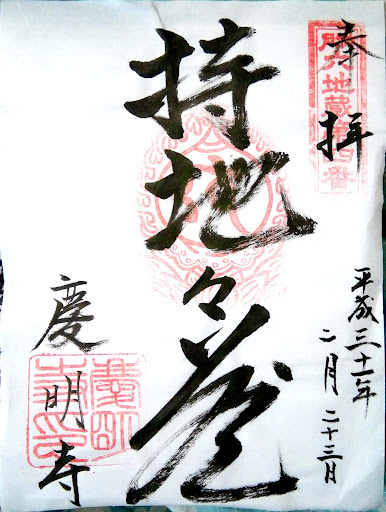 奉拝
地蔵第
番
平成三十一年
二月二十三日
持地々蔵
慶明寺
慶明寺印